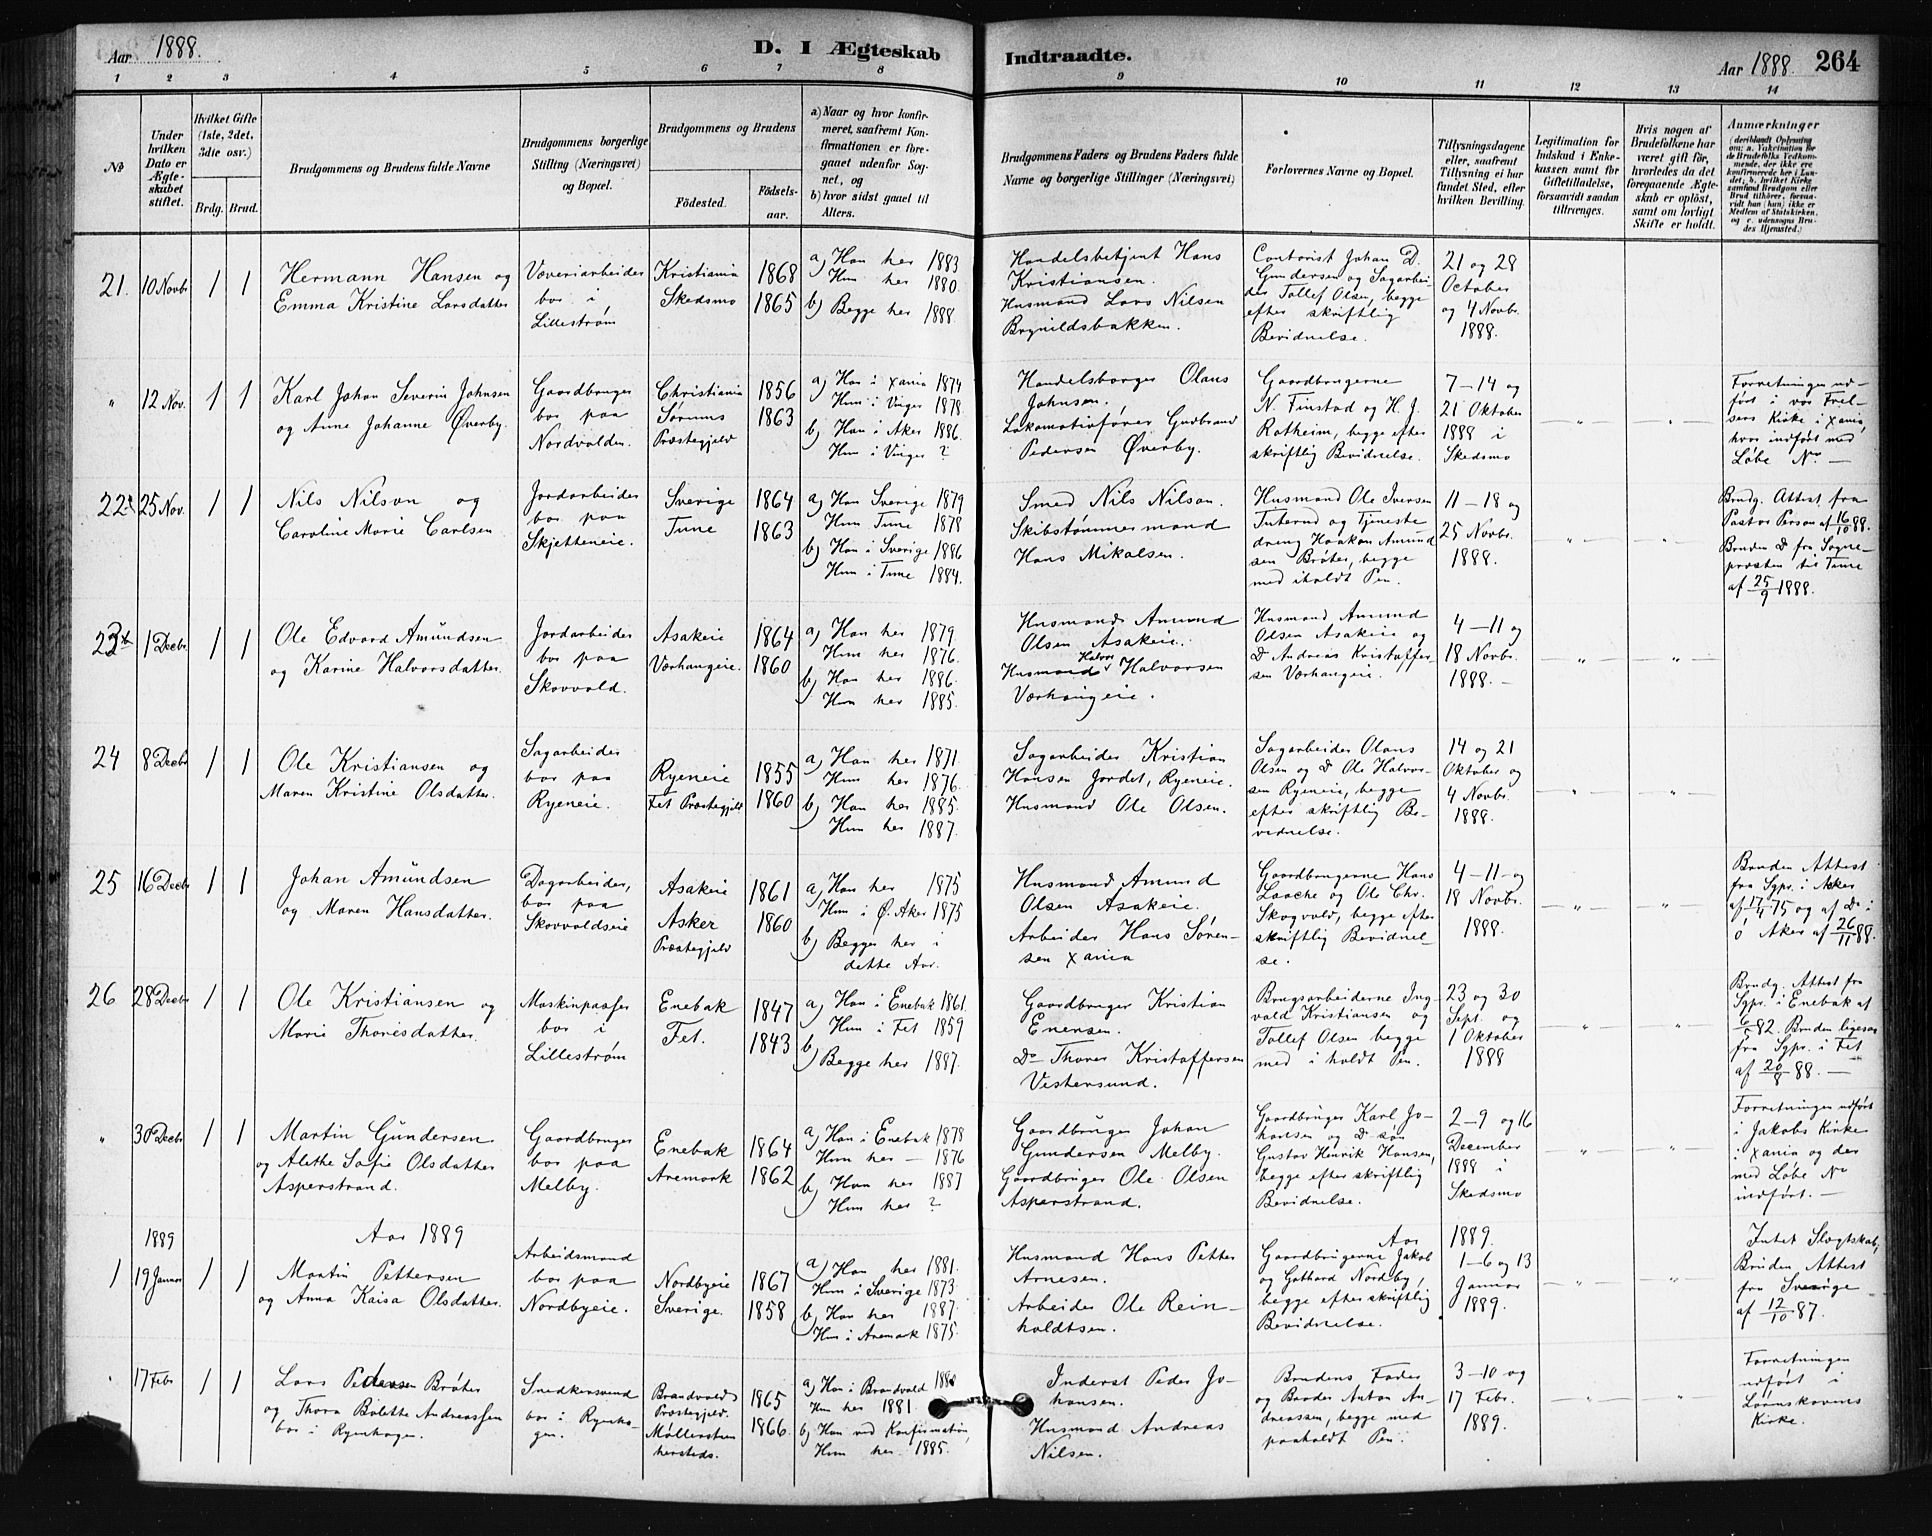 Aar 1888.
D. I Ægteskab
Indtraadte.
Aar 1888. 264
1 2 3 4 5 6 7 8 9 10 11 12 13 14
No
Under hvilken Dato er Ægteskabet stiftet.
Hvilket Gifte (1ste, 2det, 3die osv.)
Brdg. Brud.
Brudgommens og Brudens fulde Navne
Brudgommens borgerlige Stilling (Næringsvei) og Bopæl.
Brudgommens og Brudens
Födested.
Födselsaar.
a) Naar og hvor konfirmeret, saafremt Konfirmationen er foregaaet udenför Sognet, og
b) hvor sidst gaaet til Alters.
Brudgommens Faders og Brudens Faders fulde Navne og borgerlige Stillinger (Næringsvei)
Forlovernes Navne og Bopæl.
Tillysningsdagene eller, saafremt Tillysning ei har fundet Sted, efter hvilken Bevilling.
Legitimation for Indskud i Enkekassen samt for Giftetilladelse, forsaavidt saadan tiltrænges.
Hvis nogen af Brudefolkene har været gift för, hvorledes da det foregaaende Ægteskab er oplöst, samt om lovligt Skifte er holdt.
Anmærkninger
(deriblandt Oplysning om: a. Vakcination for de Brudefolks Vedkommende, der ikke ere konfirmerede her i Landet; b. hvilket Kirkesamfund Brudgom eller Brud tilhörer, forsaavidt han (hun) ikke er Medlem af Statskirken, og c. udensogns Brudes Hjemsted.)
21. 10 Novbr 1 1
Hermann Hansen og
Emma Kristine Larsdatter
Væveriarbeider
bor i
Lillestrøm
Kristiania 1868
Skedsmo 1865
a) Han her 1883
Hun her 1880.
b) Begge her 1888.
Handelsbetjent Hans
Kristiansen.
Husmand Lars Nilsen
Brynildsbakken.
Contorist Johan D.
Gundersen og Sagarbei-
der Tollef Olsen, begge
efter skriftlig
Bevidnelse.
21 og 28
October
og 4 Novbr.
1888.
" 12 Nov. 1 1
Karl Johan Severin Johnsen
og Anne Johanne Øverby.
Gaardbruger
bor paa
Nordvolden.
Christiania 1856
Sørums 1863
Præstegjeld
a) Han i Xania 1874
Hun i Vinger 1878.
b) Han i Aker 1886.
Hun i Vinger ?
Handelsborger Olaus
Johnsen.
Lokomotivfører Gudbrand
Pedersen Øverby.
Gaardbrugerne
N. Tinstad og H. J.
Rotheim, begge efter
skriftlig Bevidnelse.
7 – 14 og
21 Oktober
1888 i
Skedsmo
Forretningen ud-
ført i vor Frel-
sers Kirke i Xania,
hvor indført med
Løbe No –
22 25 Nov. 1 1
Nils Nilson og
Caroline Marie Carlsen
Jordarbeider
bor paa
Skjetteneie.
Sverige 1864
Tune 1863
a) Han Sverige 1879
Hun Tune 1878
b) Han i Sverige 1886
Hun i Tune 1884.
Smed Nils Nilson.
Skibstømmermand
Hans Mikalsen.
Husmand Ole Iversen
Tuterud og Tjeneste
dreng Haakon Amund
sen Brøter, begge
med iholdt Pen.
11 – 18 og
25 Novbr.
1888.
Brudg. Attest fra
Pastor Person af 16/10 88.
Bruden Do fra Sogne-
præsten til Tune
af 25/9 1888.
23 1 Decbr. 1 1
Ole Edvard Amundsen
og Karine Halvorsdatter.
Jordarbeider
bor paa
Skovvold.
Asakeie 1864
Vorhaugeie. 1860
a) Han her 1879.
Hun her 1876.
b) Han her 1886.
Hun her 1885.
Husmand Amund
Olsen Asakeie.
Husmand Halvor Halvorsen
Vorhaugeie.
Husmand Amund
Olsen Asakeie og
Do Andreas Kristoffer-
sen Vorhaugeie.
4 – 11 og
18 Novbr.
1888. –
24 8 Decbr 1 1
Ole Kristiansen og
Maren Kristine Olsdatter.
Sagarbeider
bor paa
Ryeneie.
Ryeneie 1855
Fet Præstegjeld 1860
a) Han her 1871
Hun her 1876.
b) Han her 1885.
Hun her 1887.
Sagarbeider Kristian
Hansen Jordet, Ryeneie.
Husmand Ole Olsen.
Sagarbeider Olaus
Olsen og Do Ole Halvor-
sen Ryeneie, begge
efter skriftlig Be-
vidnelse.
14 og 21
Oktober og
4 Novbr.
1888.
25 16 Decbr 1 1
Johan Amundsen
og Maren Hansdatter.
Dagarbeider,
bor paa
Skovvoldseie
Asakeie 1861
Asker 1860
Præstegjeld
a) Han her 1875
Hun i Ø. Aker 1875
b) Begge her i
dette Aar.
Husmand Amund
Olsen Asakeie.
Arbeider Hans Søren-
sen Xania
Gaardbrugerne Hans
Laache og Ole Chr.
Skogvold, begge efter
skriftlig Bevidnel-
se.
4 – 11 – og
18 Novbr.
1888.
Bruden Attest
fra Sgpr. i Aker
af 17/4 75 og af Do i
ø Aker af 26/11 88.
26 28 Decbr 1 1
Ole Kristiansen og
Marie Thoresdatter.
Maskinpasser
bor i
Lillestrøm
Enebak 1847
Fet. 1843
a) Han i Enebak 1861.
Hun i Fet 1859
b) Begge her 1887.
Gaardbruger Kristian
Enersen.
Do Thorer Kristoffersen
Vestersund.
Brugsarbeiderne Ing-
vald Kristiansen og
Tollef Olsen begge
med i holdt Pen.
23 og 30
Sept. og
1 Oktober
1888
Brudg. Attest fra
Sgpr. i Enebak af
82. Bruden ligesaa
fra Sgpr. i Fet
af 20/8 88. –
" 30 Decbr 1 1
Martin Gundersen
og Alethe Sofie Olsdatter
Asperstrand.
Gaardbruger
bor paa
Melby.
Enebak 1864
Aremark 1862
a) Han i Enebak 1878
Hun her – 1876
b) Han her 1887
Hun her ?
Gaardbruger Johan
Gundersen Melby.
Gaardbruger Ole Olsen
Asperstrand.
Gaardbruger Karl Jo-
hansen og Do søn
Gustav Henrik Hansen,
begge efter skriftlig
Bevidnelse.
2 – 9 og 16
December
1888 i
Skedsmo
Forretningen udført
i Jakobs Kirke
i Xania og der
med Løbe No
indført. –
1889
Aar 1889
Aar 1889.
1 19 Januar 1 1
Martin Pettersen
og Anna Kaisa Olsdatter.
Arbeidsmand
bor paa
Nordbyeie.
Nordbyeie 1867
Sverige. 1858
a) Han her 1881.
Hun i Sverige 1873.
b) Han her 1887.
Hun i Aremark 1875.
Husmand Hans Petter
Arnesen.
Arbeider Ole Rein-
holdtsen.
Gaardbrugerne Jakob
og Gothard Nordby,
begge efter skriftlig
Bevidnelse.
1 – 6 og 13
Januar
1889.
Intet Slegtskab,
Bruden Attest
fra Sverige
af 12/10 87.
17 Febr 1 1
Lars Pedersen Brøter
og Thora Bolette Andreassen
bor i Ryenhagen.
Snedkersvend
bor i Ryenha-
gen.
Brandvolds 1865
Præstegjeld.
Møllerstuen 1866.
hersteds.
a) Han i Brandvold 1880
Hun her 1881.
b) Han ved Konfirmation,
Hun her 1885.
Inderst Peder Jo-
hansen.
Husmand Andreas
Nilsen.
Brudens Fader
og Broder Anton An-
dreassen, begge med
paaholdt Pen.
3 – 10 og
17 Febr.
1889.
Forretningen
udført i
Lørenskovens
Kirke.